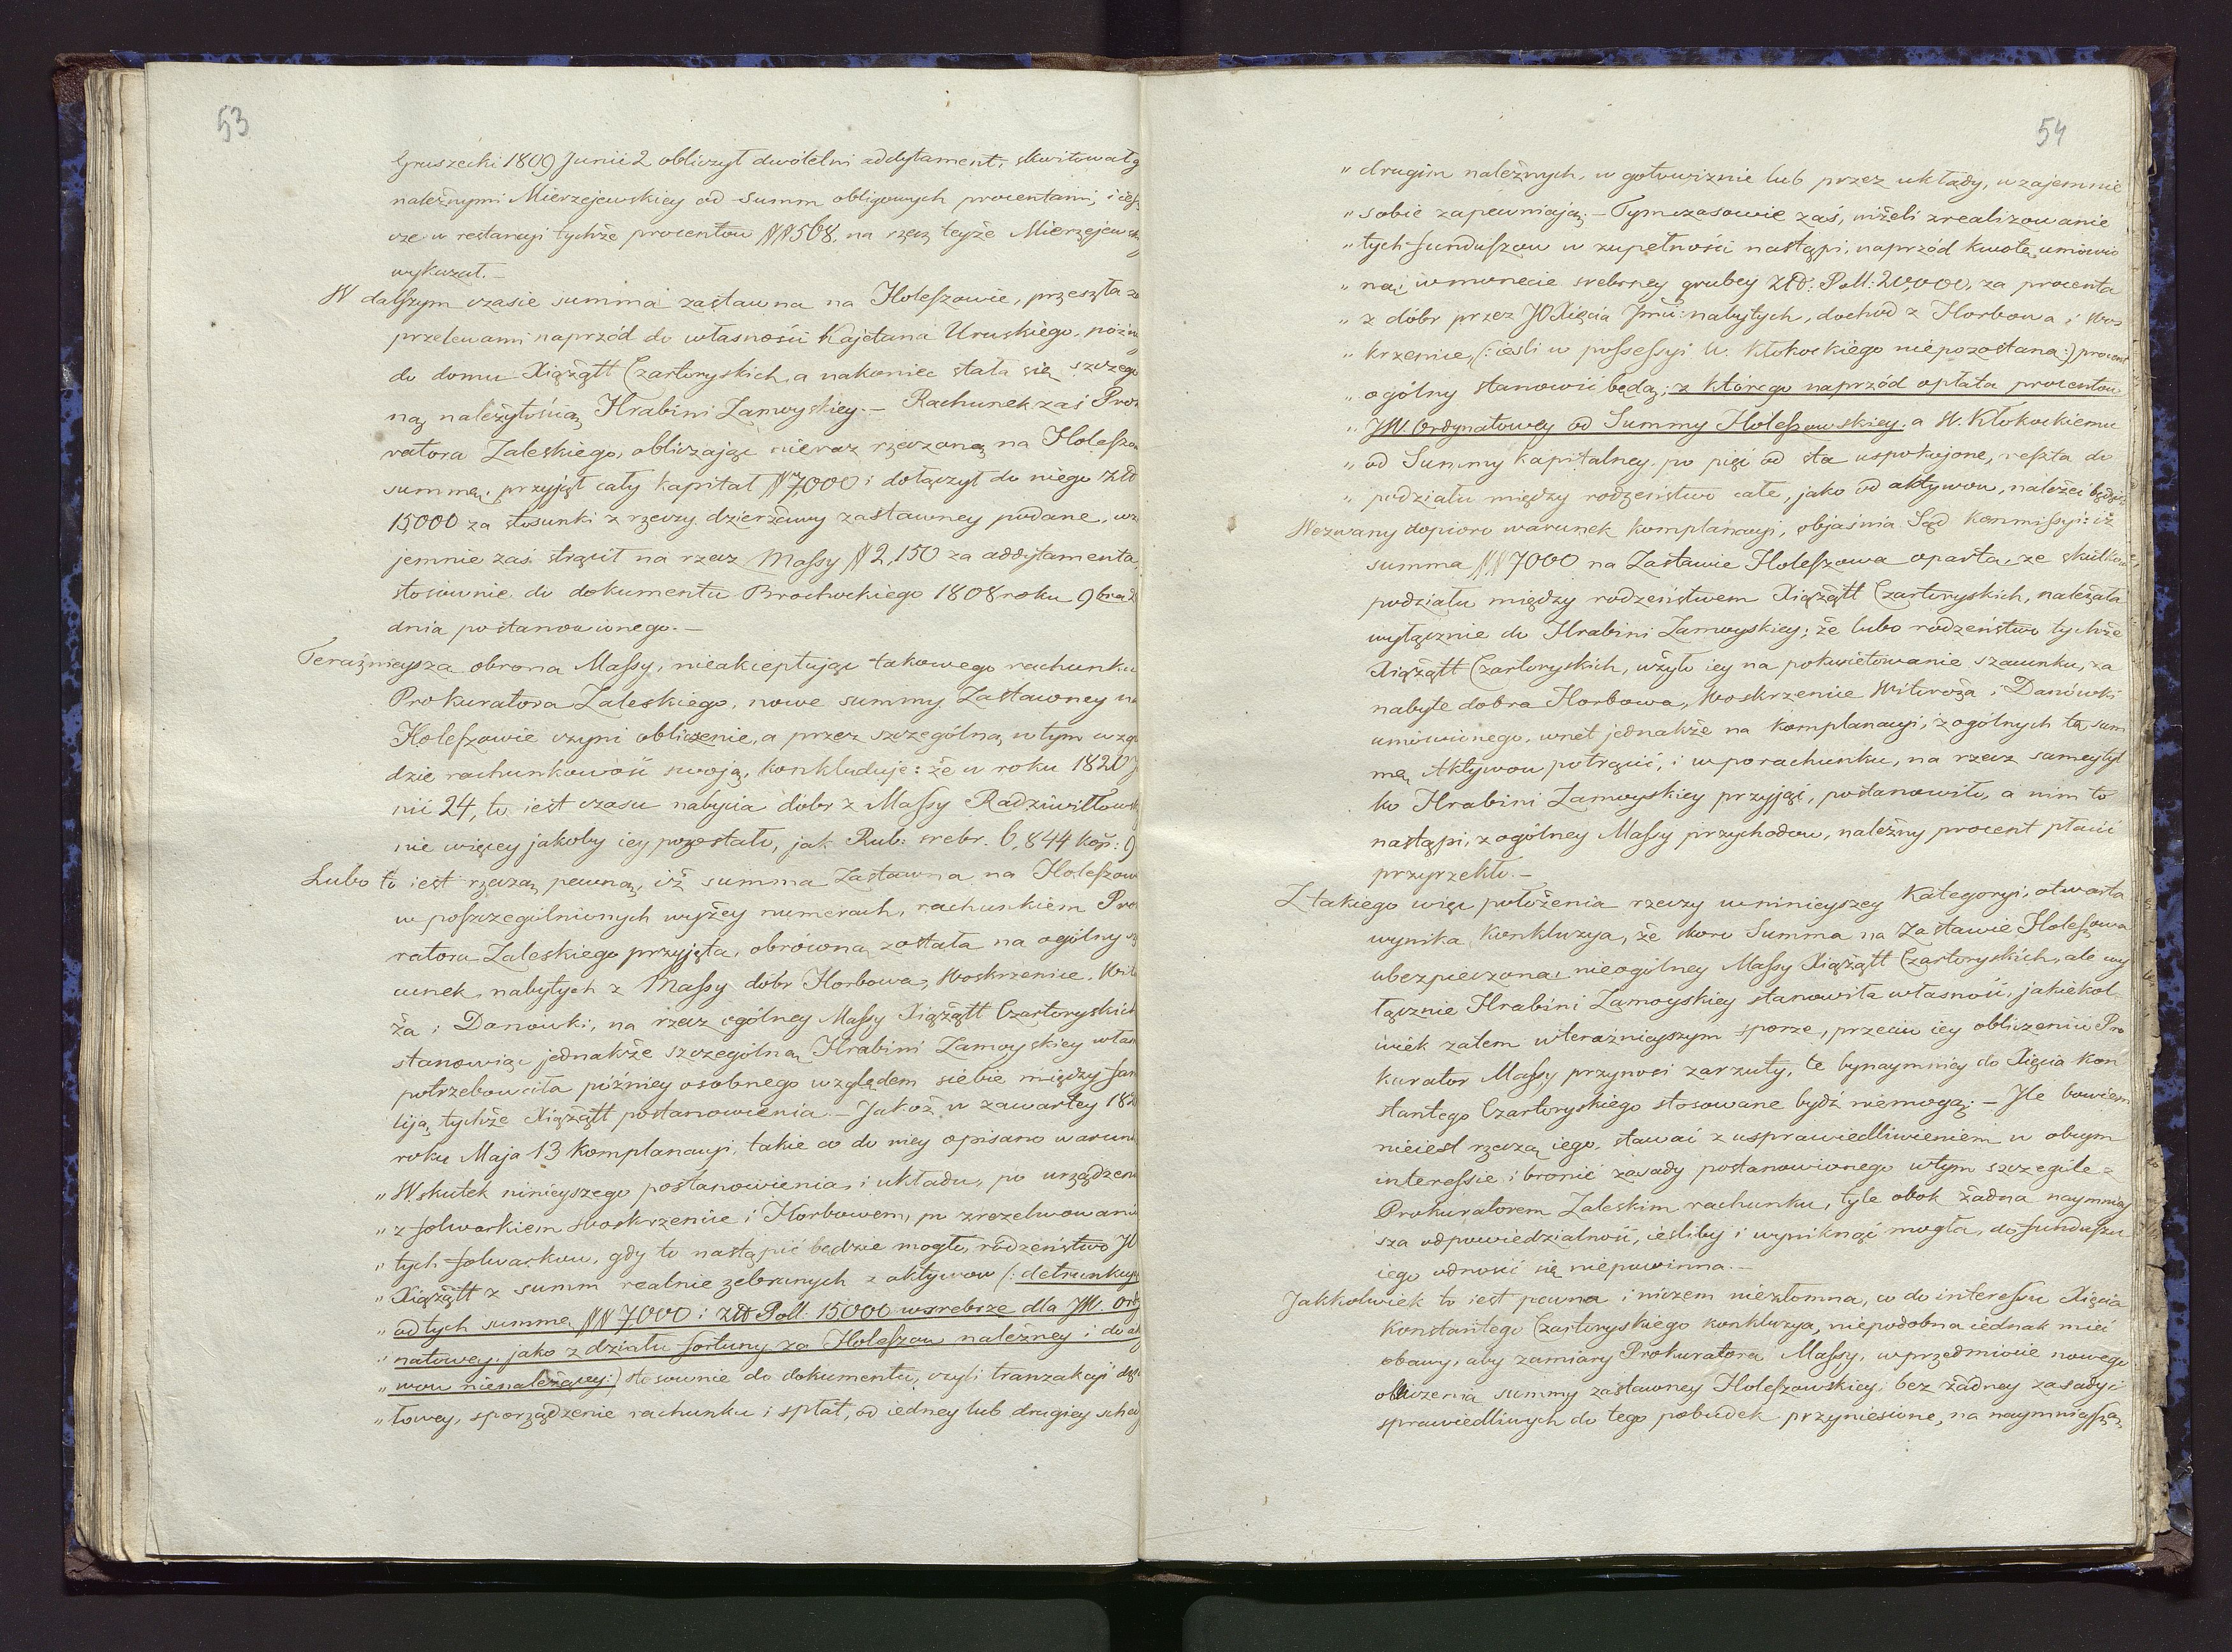 53
Gruszecki 1809 Junii 2 obliczył dwóletni addytament, skwitował g
należnymi Mierzejewskiey od summ obligowych procentami, i ieſz
cze w restancyi tychże procentow ## 508. na rzecz teyże Mierzejewsk
wykazał.—
W dalſzym czasie summa zastawna na Holeſzowie, przeszła za
przelewami naprzód do własności Kajetana Uruskiego, późni
do domu Xiążątt Czartoryskich, a nakoniec stała się szczegó
ną należytością Hrabini Zamoyskiey.— Rachunek zaś Prok
ratora Zaleskiego, obliczając nieraz rzeczoną na Holeſzo
summę, przyjął cały kapitał # 7,000 i dołączył do niego Złł
15,000 za stosunki z rzeczy dzierżawy zastawney podane, wza
jemnie zaś strącił na rzecz Maſsy # 2,150 za addytamenta,
stosownie do dokumentu Brochockiego 1808 roku 9bra 2
dnia postanowionego.—
Teraźnieysza obrona Maſsy, nieakceptując takowego rachunku
Prokuratora Zaleskiego, nowe summy Zastawney na
Holeſzowie czyni obliczenie, a przez szczególną w tym wzglę
dzie rachunkowość swoją, konkluduje: że w roku 1820 Ju
nii 24, to iest czasu nabycia dóbr z Maſsy Radziwiłłowsk
nie więcey jakoby iey pozostało, jak Rub: srebr. 6,844 kop: 9
Lubo to iest rzeczą pewną, iż summa Zastawna na Holeſzow
w poſzczególnionych wyżey numerach, rachunkiem Prok
ratora Zaleskiego przyjęta, obróconą została na ogólny sza
cunek, nabytych z Maſsy dóbr Horbowa, Woskrzenice, Wit
ża i Danówki, na rzecz ogólney Maſsy Xiążątt Czartoryskich
stanowiąc jednakże szczególną Hrabini Zamoyskiey włas
potrzebowała późniey osobnego względem siebie między fam
liją tychże Xiążątt postanowienia.— Jakoż w zawartey 182
roku Maja 13 komplanacyi, takie co do niey opisano warun
„ W skutek ninieyszego postanowienia, i układu, po urządzeni
„ z folwarkiem Woskrzenice i Horbowem, po zrezelwowani
„ tych folwarkow, gdy to nastąpić będzie mogło, rodzeństwo JO
„ Xiążątt z summ realnie zebranych z aktywow (: detrunkuj
„ od tych summę ## 7,000 i Złł Poll: 15000 w srebrze dla JW. Ordy
„ natowey, jako z działu fortuny za Holeſzow należney i do akt
„ wow nienależącey :) stosownie do dokumentu, czyli tranzakcyi dzia
„ łowey, sporządzenie rachunku i spłat, od iedney lub drugiey sched
54
„ drugim należnych, w gotowiznie lub przez układy, wzajemnie
„ sobie zapewniają.— Tymczasowie zaś, niżeli zrealizowanie
„ tych funduſzow w zupełności nastąpi, naprzód kwotę umówio
„ ną w monecie srebrney grubey Złł: Poll: 20,000, za procenta
„ z dóbr przez JO Xięcia Jmci: nabytych, dochod z Horbowa i Wos
„ krzenice, (: iesli w poſseſsyi W. Kłokockiego niepozostaną :) procent
„ ogólny stanowić będą; z którego naprzód opłata procentow
„ JW. Ordynatowey od Summy Holeſzowskiey, a W. Kłokockiemu
„ od Summy kapitalney po pięć od sta uspokojone, reſzta do
„ podziału między rodzeństwo całe, jako od aktywow, należeć będzie
Nezwany dopioro warunek komplanacyi, objaśnia Sąd Kommiſsyi: iż
summa ## 7000 na Zastawie Holeſzowa oparta, ze skutkow
podziału między rodzeństwem Xiążątt Czartoryskich, należała
wyłącznie do Hrabini Zamoyskiey; że lubo rodzeństwo tychże
Xiążątt Czartoryskich, użyło iey na pokwietowanie szacunku, za
nabyte dobra Horbowa, Woskrzenice Witoroża i Danówki
umówionego, wnet jednakże na komplanacyi, z ogólnych tę sum
mę Aktywow potrącić, i w porachunku, na rzecz samey tyl
ko Hrabini Zamoyskiey przyjąć, postanowiło, a nim to
nastąpi, z ogólney Maſsy przychodow, należny procent płacić
przyrzekło.—
Z takiego więc położenia rzeczy w ninieyszey Kategoryi, otwarta
wynika konkluzya, że skoro Summa na Zastawie Holeſzowa
ubezpieczona, nieogólney Maſsy Xiążątt Czartoryskich, ale wy
łącznie Hrabini Zamoyskiey stanowiła własność, jakiekol=
wiek zatem w teraźnieyszym sporze, przeciw iey obliczeniu Pro
kurator Maſsy przynosi zarzuty, te bynaymniey do Xięcia Kon
stantego Czartoryskiego stosowane bydź niemogą.— Ile bowiem
nieiest rzeczą iego, stawać z usprawiedliwieniem w obcym
intereſsie i bronić zasady postanowionego w tym szczególe z
Prokuratorem Zaleskim rachunku, tyle obok żadna naymniey
sza odpowiedzialność, iesliby i wyniknąć mogła, do funduſzu
iego odnosić się niepowinna.—
Jakkolwiek to iest pewna i niczem niezłomna, co do intereſsu Xięcia
Konstantego Czartoryskiego konkluzya, niepodobna iednak mieć
obawy, aby zamiary Prokuratora Maſsy, w przedmiocie nowego
obliczenia summy zastawney Holeſzowskiey, bez żadney zasady i
sprawiedliwych do tego pobudek przyniesione, na naymnieyſzą